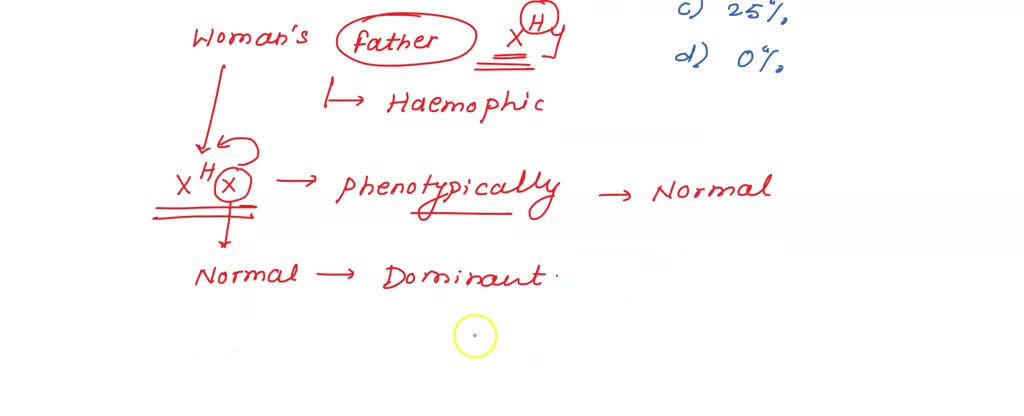 c) 25%.
Woman's father X^H y
d) 0%.
↳ Haemophic
X^H X → Phenotypically → Normal
Normal → Dominant.